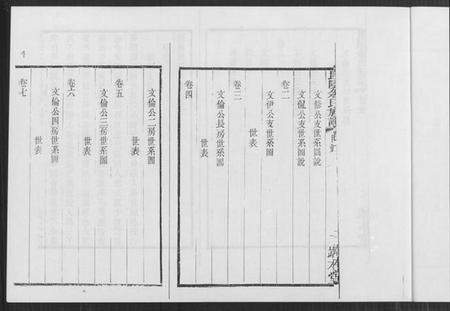 文修公支世系圖說
文侃公支世系圖說
卷二
文伊公支世系圖
世表
卷三
文倫公長房世系圖
世表
卷四
文倫公二房世系圖
世表
卷五
文倫公三房世系圖
世表
卷六
文倫公四房世系圖
世表
卷七